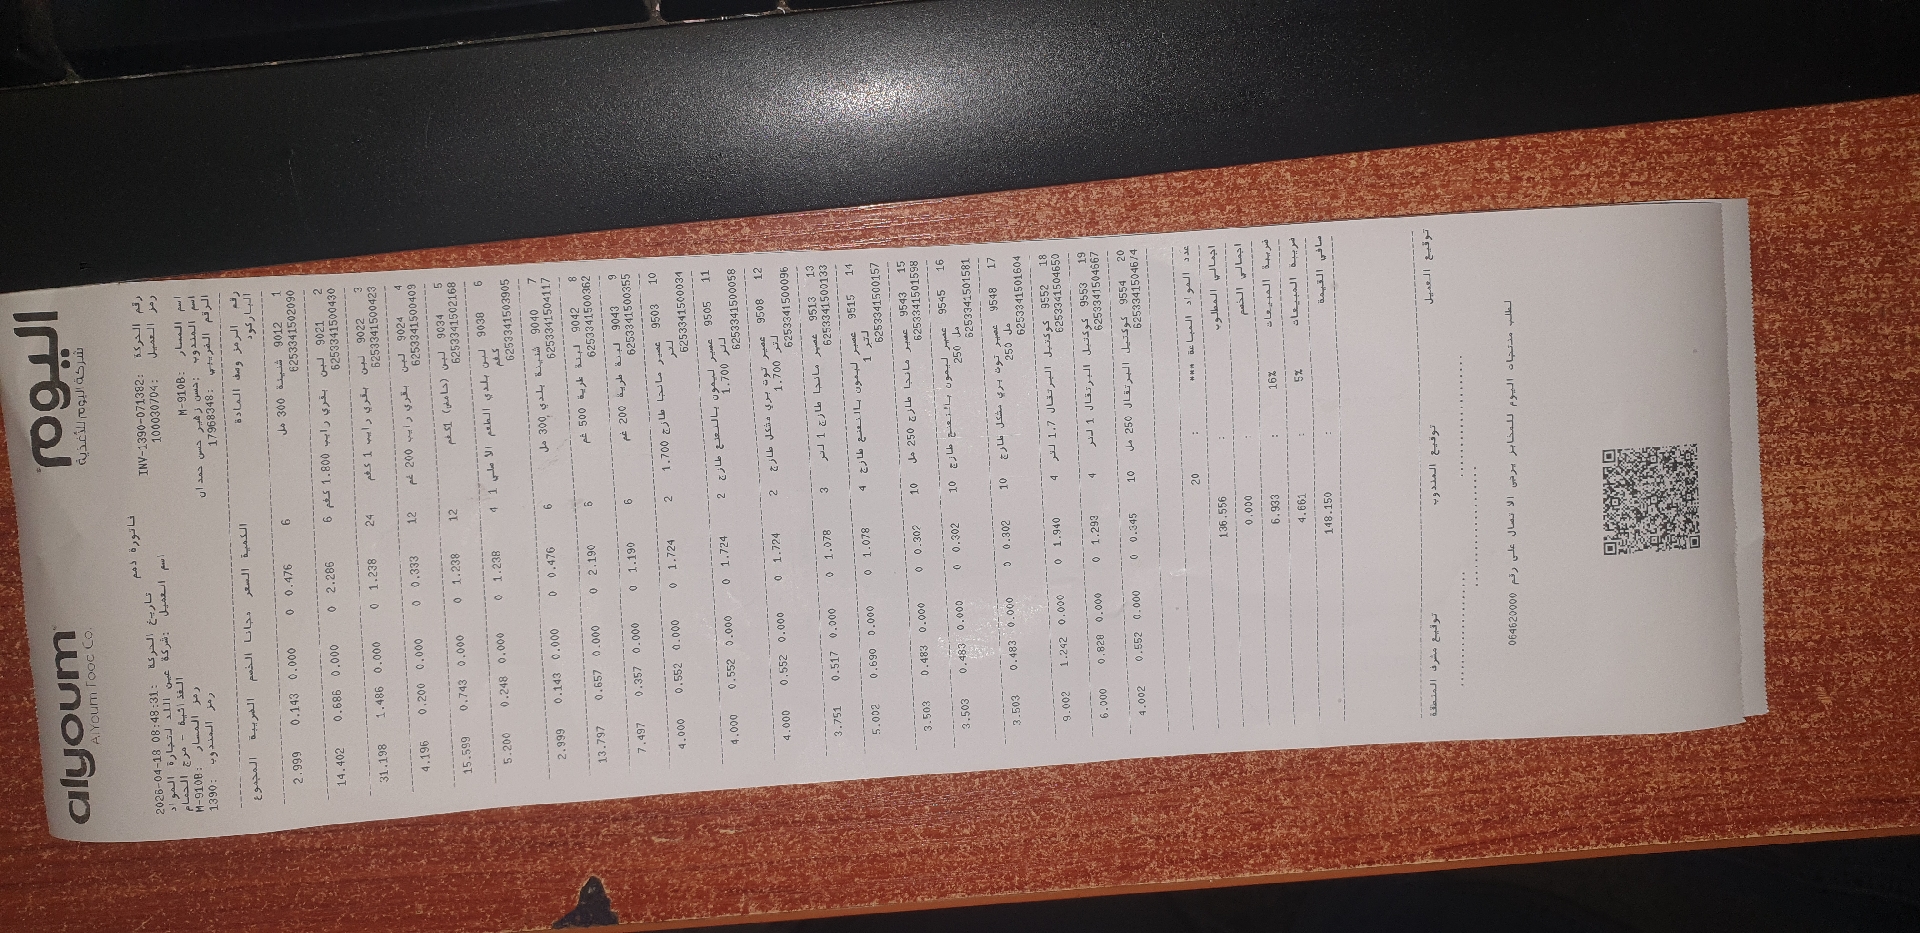 alyoum اليوم
AlYoum Fooc Co. شركة اليوم للأغذية
فاتورة ذمم
رقم الحركة: INV-1390-071382 تاريخ الحركة: 2026-04-18 08:48:31
رمز العميل: 100030704 اسم العميل: شركة عين اللد لتجارة المواد
الغذائية - مرج الحمام
اسم المسار: M-910B رمز المسار: M-910B
اسم المندوب: حسن زهير حسن حمدان رمز المندوب: 1390
الرقم الضريبي: 17968348
رقم الرمز وصف المادة
الباركود الكمية السعر مجانا الخصم الضريبة المجموع
1 9012 شنينة 300 مل
6253341502090 6 0.476 0 0.000 0.143 2.999
2 9021 لبن بقري رايب 1.800 كغم
6253341500430 6 2.286 0 0.000 0.686 14.402
3 9022 لبن بقري رايب 1 كغم
6253341500423 24 1.238 0 0.000 1.486 31.198
4 9024 لبن بقري رايب 200 غم
6253341500409 12 0.333 0 0.000 0.200 4.196
5 9034 لبن (حامض) 1كغم
6253341502168 12 1.238 0 0.000 0.743 15.599
6 9038 لبن بلدي الطعم الاصلي 1
كغم
6253341503905 4 1.238 0 0.000 0.248 5.200
7 9040 شنينة بلدي 300 مل
6253341504117 6 0.476 0 0.000 0.143 2.999
8 9042 لبنة طرية 500 غم
6253341500362 6 2.190 0 0.000 0.657 13.797
9 9043 لبنة طرية 200 غم
6253341500355 6 1.190 0 0.000 0.357 7.497
10 9503 عصير مانجا طازج 1.700
لتر
6253341500034 2 1.724 0 0.000 0.552 4.000
11 9505 عصير ليمون بالنعنع طازج
1.700 لتر
6253341500058 2 1.724 0 0.000 0.552 4.000
12 9508 عصير توت بري مشكل طازج
1.700 لتر
6253341500096 2 1.724 0 0.000 0.552 4.000
13 9513 عصير مانجا طازج 1 لتر
6253341500133 3 1.078 0 0.000 0.517 3.751
14 9515 عصير ليمون بالنعنع طازج
1 لتر
6253341500157 4 1.078 0 0.000 0.690 5.002
15 9543 عصير مانجا طازج 250 مل
6253341501598 10 0.302 0 0.000 0.483 3.503
16 9545 عصير ليمون بالنعنع طازج
250 مل
6253341501581 10 0.302 0 0.000 0.483 3.503
17 9548 عصير توت بري مشكل طازج
250 مل
6253341501604 10 0.302 0 0.000 0.483 3.503
18 9552 كوكتيل البرتقال 1.7 لتر
6253341504650 4 1.940 0 0.000 1.242 9.002
19 9553 كوكتيل البرتقال 1 لتر
6253341504667 4 1.293 0 0.000 0.828 6.000
20 9554 كوكتيل البرتقال 250 مل
6253341504674 10 0.345 0 0.000 0.552 4.002
عدد المواد المباعة *** : 20
اجمالي المطلوب : 136.556
اجمالي الخصم : 0.000
ضريبة المبيعات 16% : 6.933
ضريبة المبيعات 5% : 4.661
صافي القيمة : 148.150
توقيع العميل توقيع المندوب توقيع مشرف المنطقة
لطلب منتجات اليوم للمخابز يرجى الاتصال على رقم 064620000